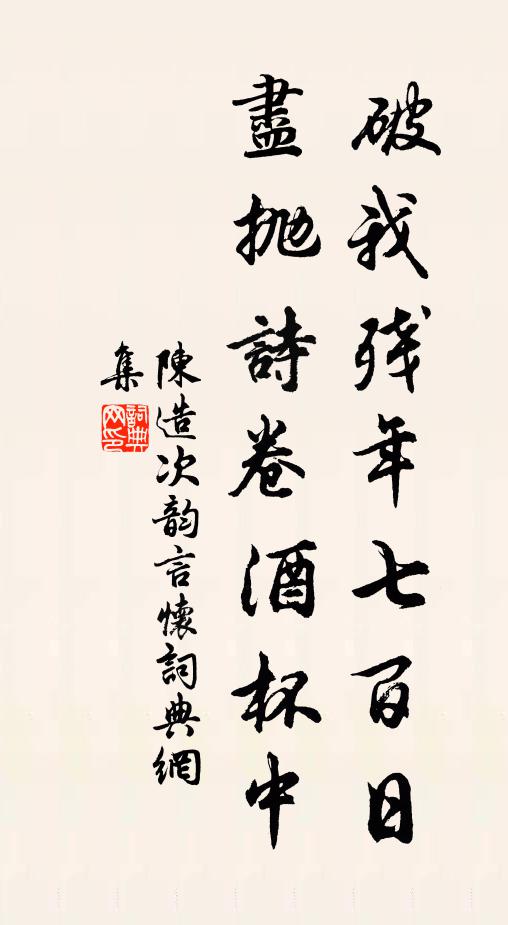 破我残年七百日
盡抛詩卷酒杯中
陳造次韵言懷詞典網
集
詞典
网印